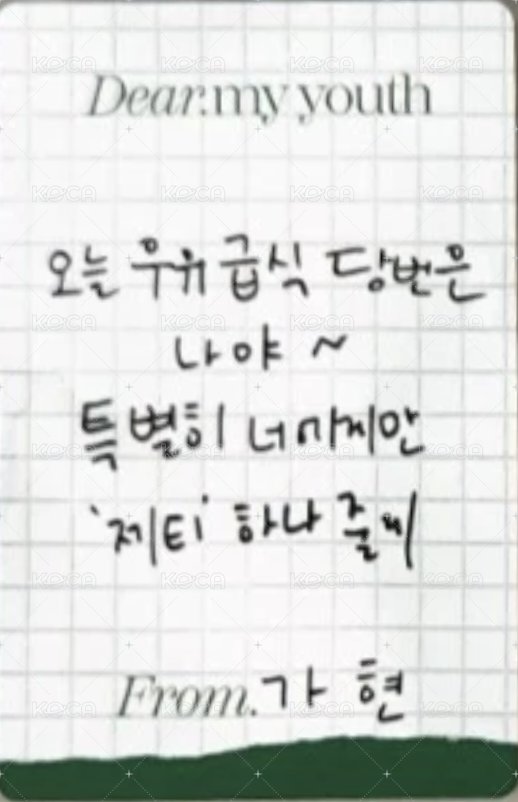 Dear.my youth
오늘 우유급식 당번은
나야 ~
특별히 너까지만
'제티' 하나 줄게
From.가현